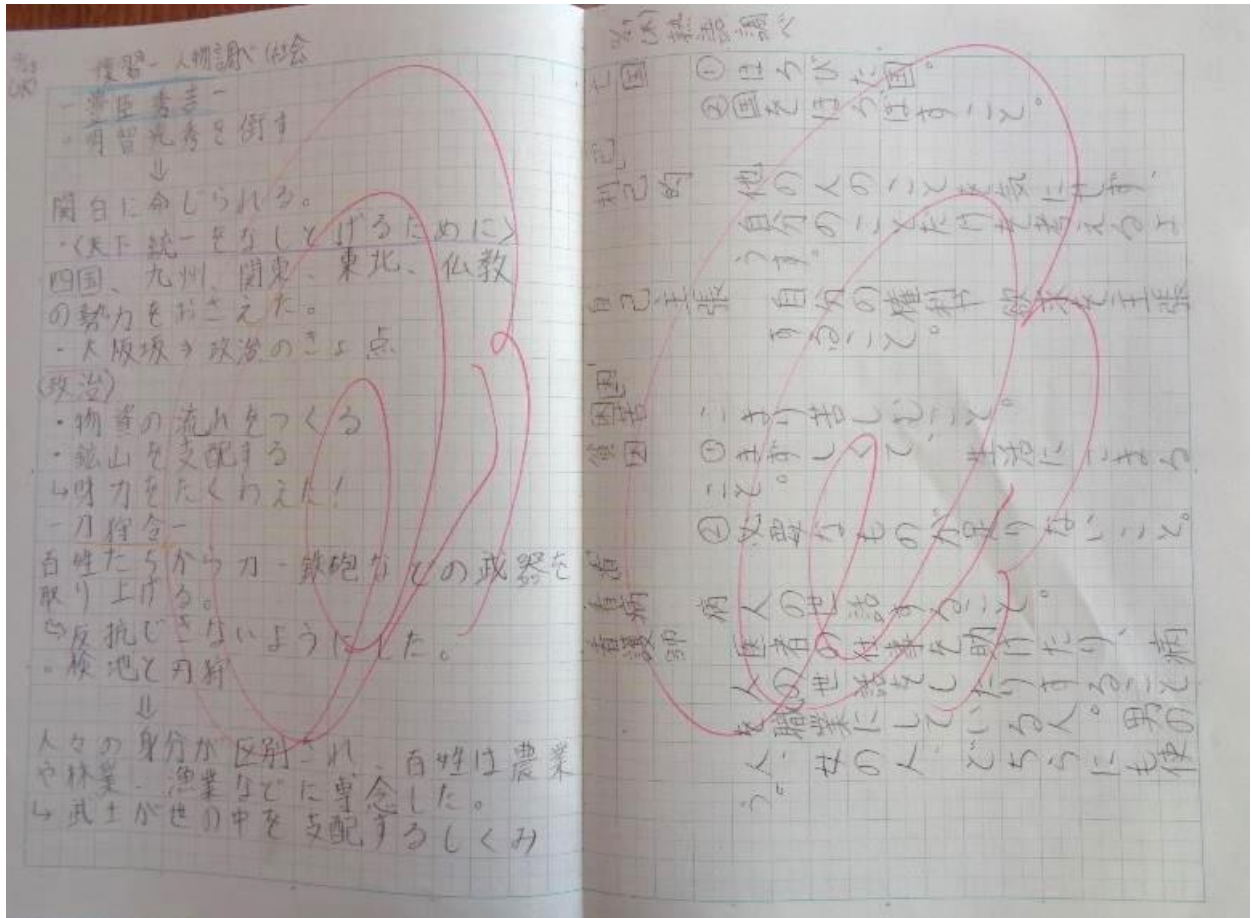 復習-人物調べ 社会
-豊臣秀吉-
・明智光秀を倒す
⇓
関白に命じられる。
・<天下統一をなしとげるために>
四国、九州、関東、東北、仏教
の勢力をおさえた。
・大阪坂→政治のきょ点
(政治)
・物資の流れをつくる
・鉱山を支配する
↳財力をたくわえた!
-刀狩令-
百姓たちから刀・鉄砲などの武器を
取り上げる。
⇨反抗できないようにした。
・検地と刀狩
⇓
人々の身分が区別され、百姓は農業
や林業、漁業などに専念した。
↳武士が世の中を支配するしくみ
熟語調べ
亡国 ①ほろびた国。
②国をほろぼすこと。
己
利己的 他の人のことを気にせず、
自分のことだけを考えるよ
うす。
自己主張 自分の権利や欲求を主張
すること。
困
困苦 こまり苦しむこと。
貧困 ①まずしくて、生活にこまる
こと。
②必要なものが足りないこと。
看
看病 病人の世話すること。
看護師 医者の仕事を助けたり、病
人の世話をしたりすること
を職業にしている人。男の
人、女の人、どちらにも使
う。